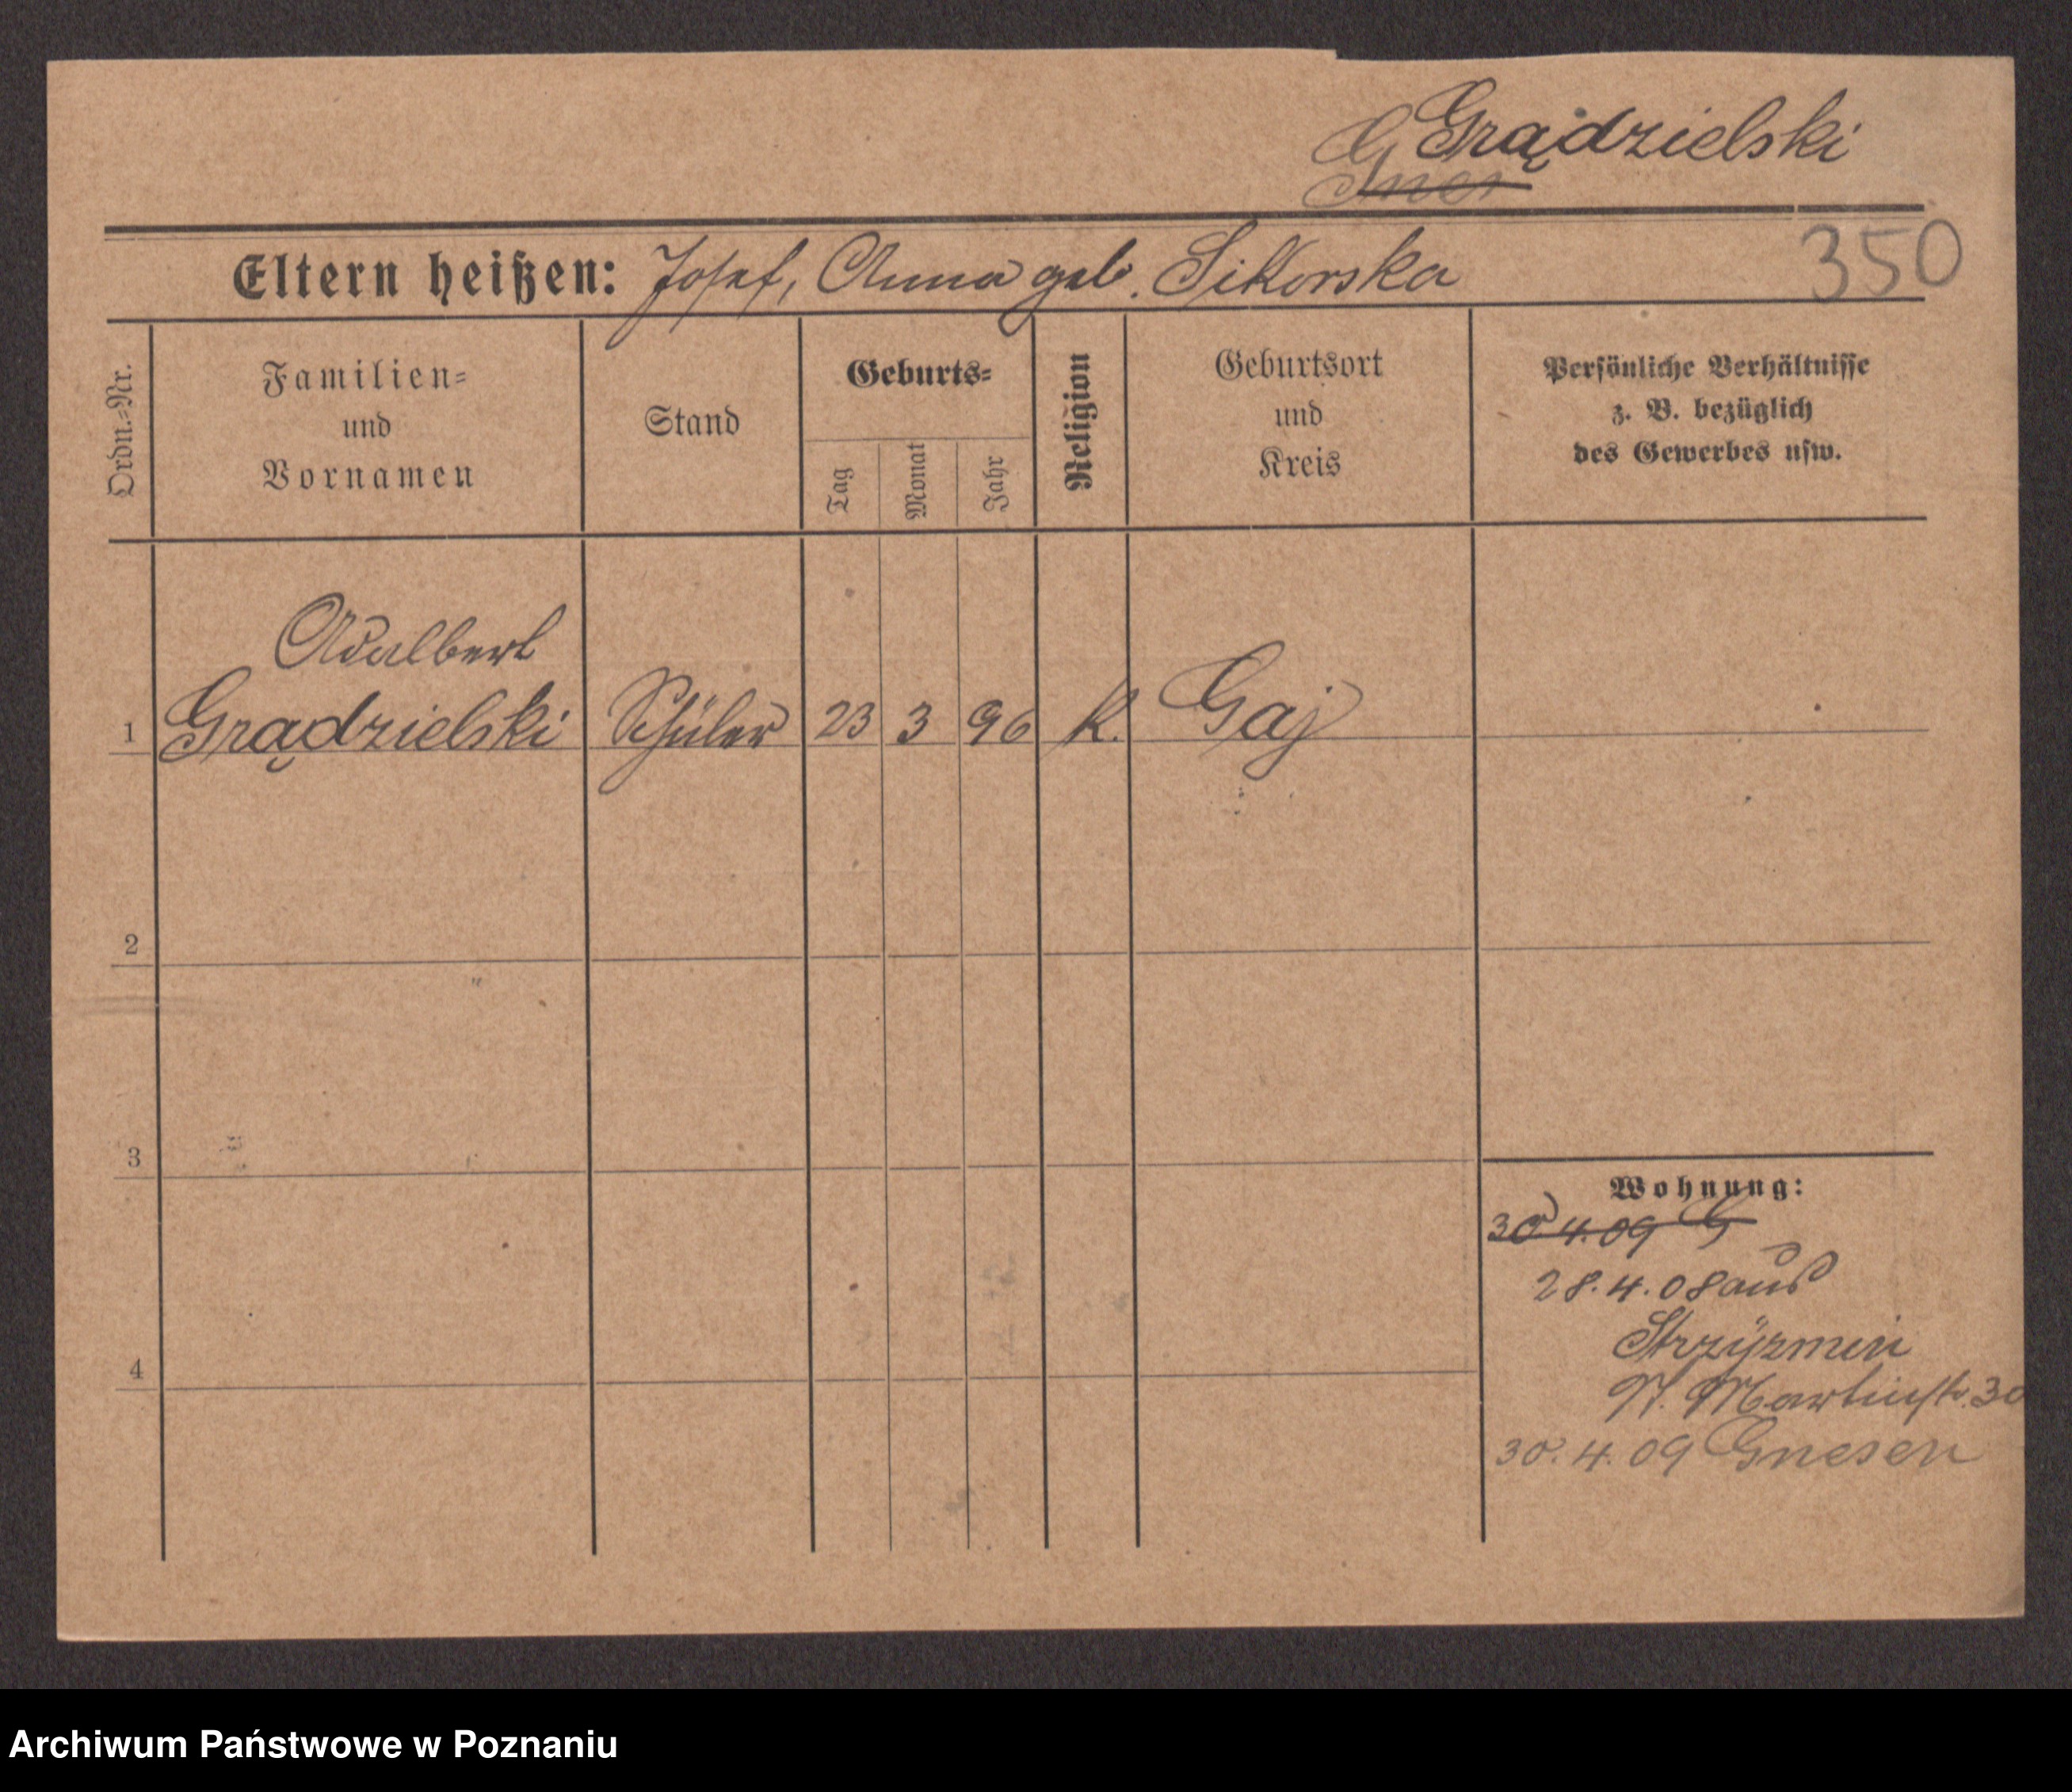 Grądzielski
350
Eltern heißen: Josef, Anna geb. Sikorska
Ordn.-Nr.
Familien-
und
Vornamen
Stand
Geburts-
Tag
Monat
Jahr
Religion
Geburtsort
und
Kreis
Persönliche Verhältnisse
z. B. bezüglich
des Gewerbes usw.
Adalbert
1 Grądzielski Schüler 23 3 96 K. Gaj
2
3
4
Wohnung:
30.4.09 G
28.4.08 aus
Strzyzmin
St. Martinstr. 30
30.4.09 Gnesen
Archiwum Państwowe w Poznaniu